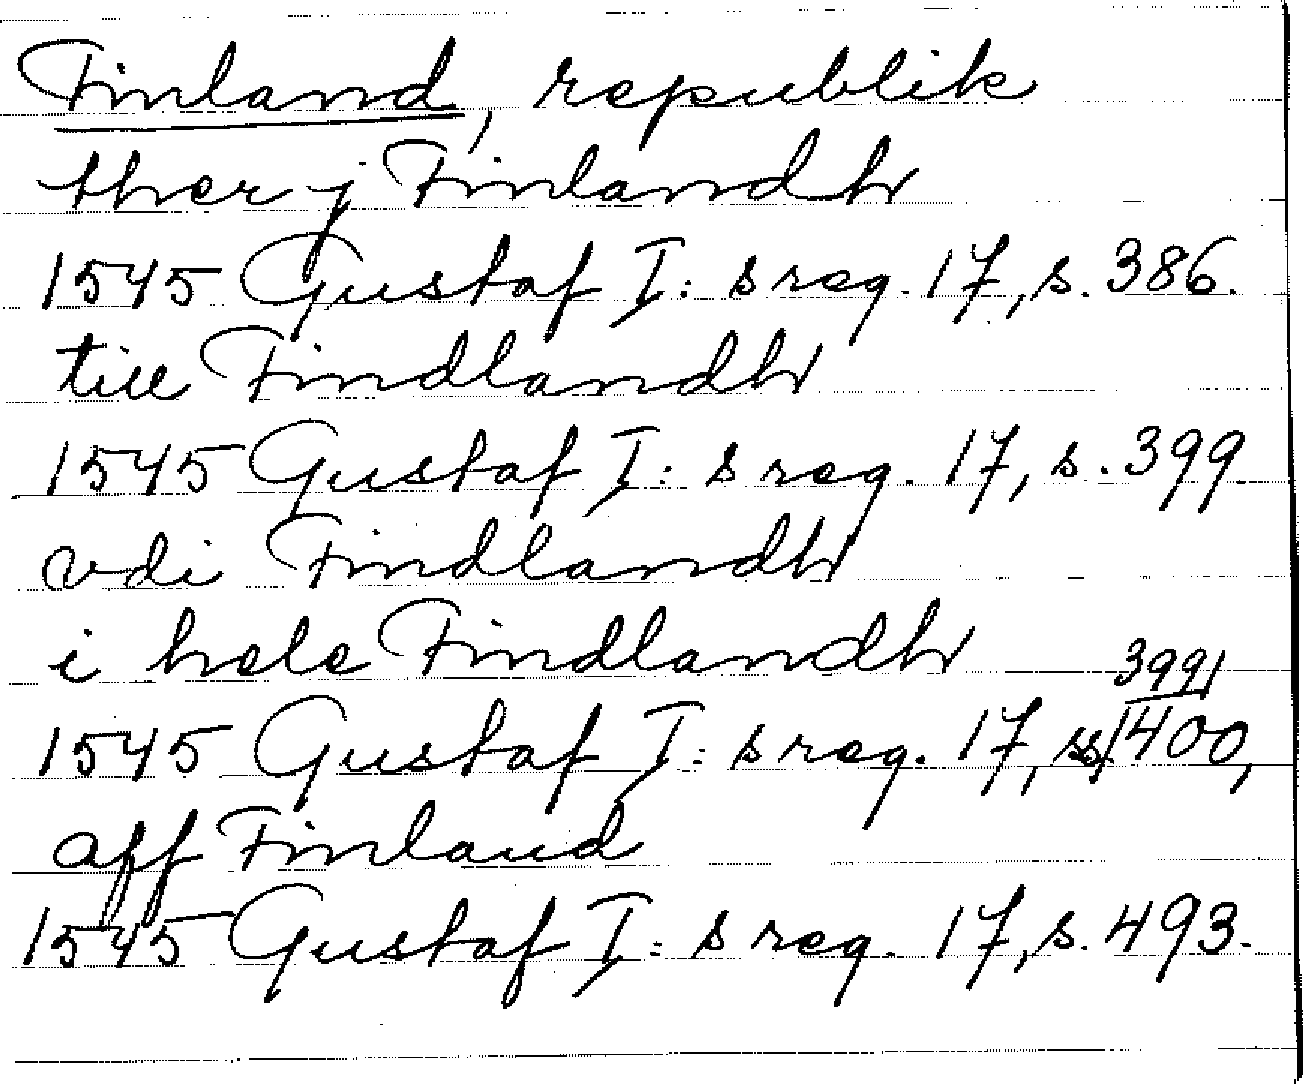 Finland, republik
ther j Finlandh
1545 Gustaf I:s reg. 17, s. 386.
till Findlandh
1545 Gustaf I:s reg. 17, s. 399
vdi Findlandh
i hele Findlandh
399
1545 Gustaf I:s reg. 17, s. 400,
aff Finland
1545 Gustaf I:s reg. 17, s. 493.